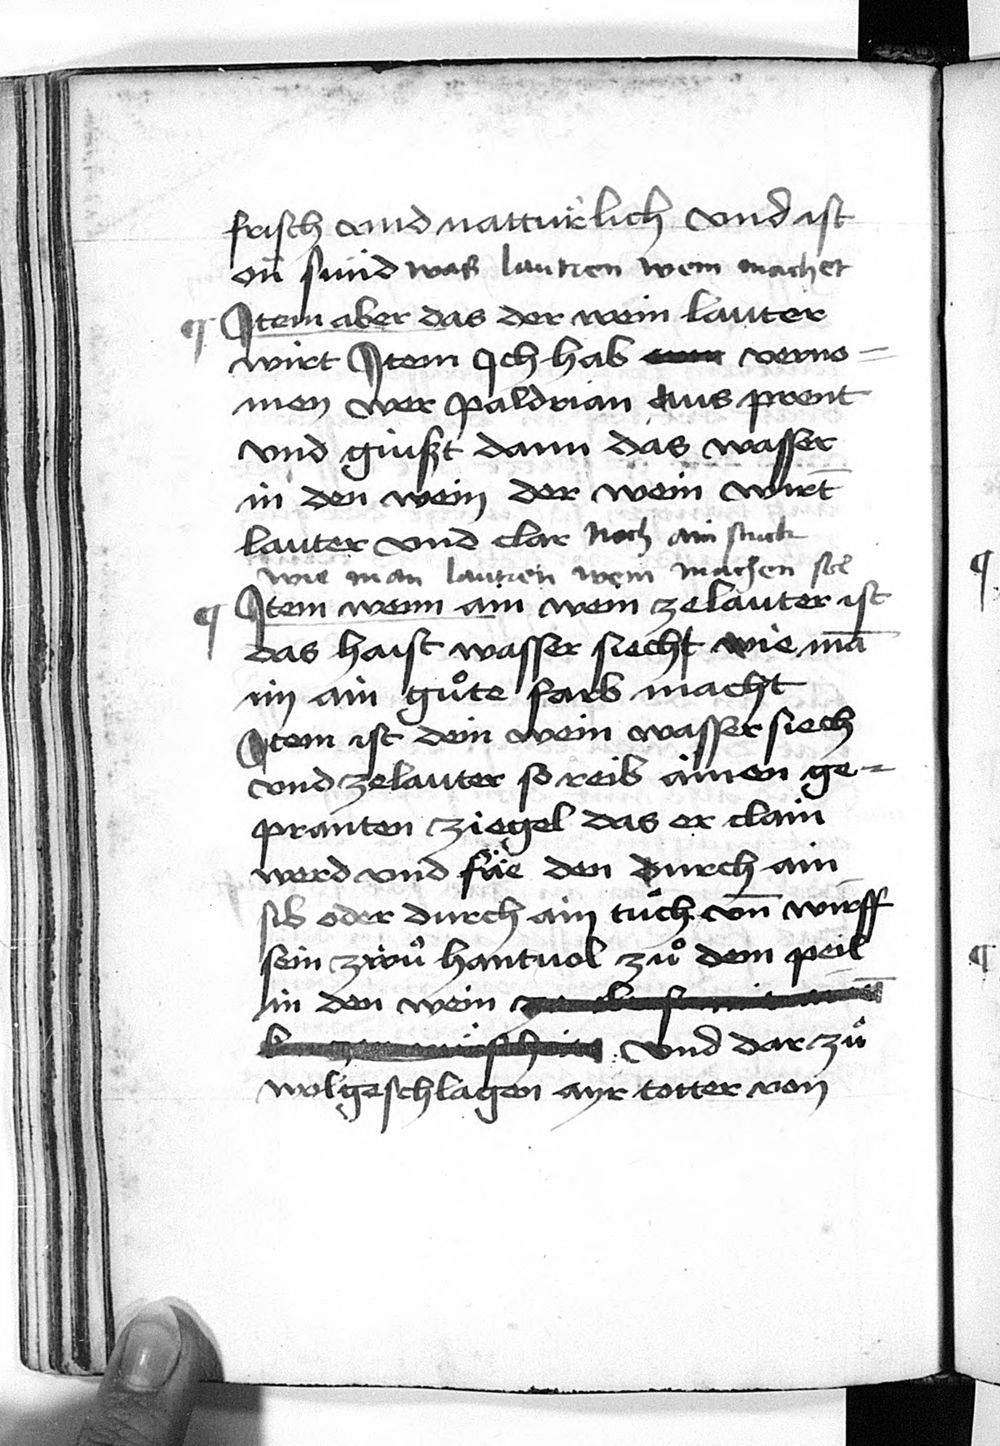 frisch vnd natturlich vnd ist
on sünd was lautren wein machet
¶ Item aber das der wein lauter
wirt Item Ich hab verno=
men wer paldrian aus prent
vnd giußt dann das wasser
in den wein der wein wirt
lauter vnd clar Noch ain stuck
wie man lautren wein machen sol
¶ Item wenn ain wein zelauter ist
das haist wasser siecht wie mā
im ain gůte farb macht
Item ist dein wein wasser siech
vnd zelauter so reib ainen ge=
pranten ziegel das er clain
werd vnd säe den durch ain
sib oder durch ain tůch vn̄ wirff
sein zwů hantuol zů dem peil
in den wein
vnd dar zů
wolgeschlagen ayr totter von